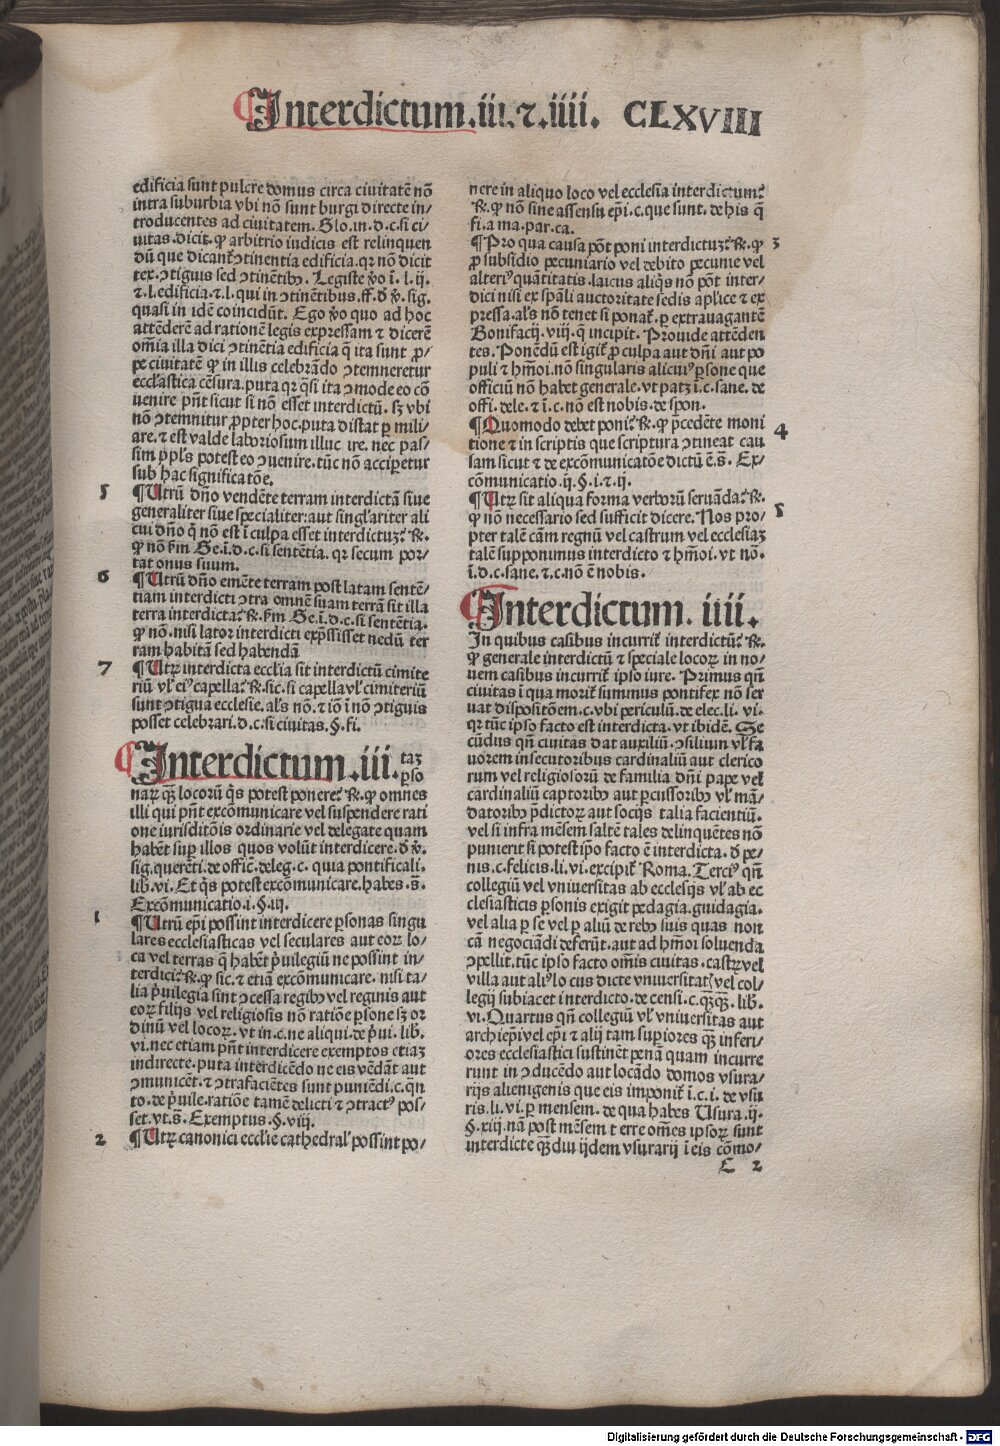 Interdictum .iii. ⁊ .iiii. CLXVIII
edificia sunt pulcre domus circa ciuitatē nō
intra suburbia vbi nō sunt burgi directe in/
troducentes ad ciuitatem. Glo. in. d. c. si ci/
uitas. dicit. ꝙ arbitrio iudicis est relinquen
dū que dicant̄ ꝯtinentia edificia. qr nō dicit
tex. ꝯtiguis sed ꝯtinētibꝰ. Legiste ꝟo ī. l. ij.
⁊. l. edificia. ⁊. l. qui in ꝯtinētibus. ff. đ ꝟ. sig.
quasi in idē coincidūt. Ego ꝟo quo ad hoc
attēderē ad rationē legis expressam ⁊ dicerē
om̄ia illa dici ꝯtinētia edificia q̄ ita sunt ꝓ/
pe ciuitatē ꝙ in illis celebrādo ꝯtemneretur
eccl̄astica cēsura. puta qr q̄si ita ꝯmode eo cō
uenire pn̄t sicut si nō esset interdictū. sꝫ vbi
nō ꝯtemnitur ꝓpter hoc. puta distat ꝑ mili/
are. ⁊ est valde laboriosum illuc ire. nec pas/
sim ppl̄s potest eo ꝯuenire. tūc nō accipetur
sub hac significatōe.
5 ¶ Utrū dn̄o vendēte terram interdictā siue
generaliter siue specialiter: aut singl̄ariter ali
cui dn̄o q̄ nō est ī culpa esset interdictuꝫ? ℞.
ꝙ nō ẜm Ge. ī. d. c. si sentētia. qr secum por/
tat onus suum.
6 ¶ Utrū dn̄o emēte terram post latam sentē/
tiam interdicti ꝯtra omnē suam terrā sit illa
terra interdicta? ℞. ẜm Ge. ī. d. c. si sentētia.
ꝙ nō. nisi lator interdicti exp̄ssisset nedū ter
ram habitā sed habendā
7 ¶ Utrꝫ interdicta eccl̄ia sit interdictū cimite
riū vl̓ eiꝰ capella? ℞. sic. si capella vl̓ cimiteriū
sunt ꝯtigua ecclesie. al̓s nō. ⁊ iō ī nō ꝯtiguis
posset celebrari. d. c. si ciuitas. §. fi.
Interdictum .iii. taꝫ
ꝑso
narꝫ qꝫ locorū q̄s potest ponere? ℞. ꝙ omnes
illi qui pn̄t excōmunicare vel suspendere rati
one iurisditōis ordinarie vel delegate quam
habēt suꝑ illos quos volūt interdicere. đ ꝟ.
sig. querēti. de offic. deleg. c. quia pontificali.
lib. vi. Et q̄s potest excōmunicare. habes. s̄.
Excōmunicatio. i. §. iij.
1 ¶ Utrū ep̄i possint interdicere ꝑsonas singu
lares ecclesiasticas vel seculares aut eorꝫ lo/
ca vel terras q̄ habēt p̄uilegiū ne possint in/
terdici? ℞. ꝙ sic. ⁊ etiā excōmunicare. nisi ta/
lia p̄uilegia sint ꝯcessa regibꝰ vel reginis aut
eorꝫ filijs vel religiosis nō ratiōe ꝑsone sꝫ or
dinū vel locorꝫ. vt in. c. ne aliqui. de p̄ui. lib.
vi. nec etiam pn̄t interdicere exemptos etiaꝫ
indirecte. puta interdicēdo ne eis vēdāt aut
ꝯmunicēt. ⁊ ꝯtrafaciētes sunt puniēdi. c. qn̄
to. de p̄uile. ratiōe tamē delicti ⁊ ꝯtractꝰ pos/
set. vt. s̄. Exemptus. §. viij.
2 ¶ Utrꝫ canonici eccl̄ie cathedral̓ possint po/
nere in aliquo loco vel ecclesia interdictum?
℞. ꝙ nō sine assensu ep̄i. c. que sunt. de his q̄
fi. a ma. par. ca.
¶ Pro qua causa pōt poni interdictuꝫ? ℞. ꝙ 3
ꝓ subsidio pecuniario vel debito pecunie vel
alteriꝰ quātitatis. laicus aliq̄s nō pōt inter/
dici nisi ex sp̄ali auctoritate sedis apl̓ice ⁊ ex
pressa. al̓s nō tenet si ponat̄. ꝑ extrauagantē
Bonifacij. viij. q̄ incipit. Prouide attēden
tes. Ponēdū est igit̄ ꝓ culpa aut dn̄i aut po
puli ⁊ hm̄oi. nō singularis alicuiꝰ ꝑsone que
officiū nō habet generale. vt patꝫ ī. c. sane. de
offi. dele. ⁊ ī. c. nō est nobis. de spon.
¶ Quomodo debet poni? ℞. ꝙ p̄cedēte moni 4
tione ⁊ in scriptis que scriptura ꝯtineat cau
sam sicut ⁊ de excōmunicatōe dictū ē. s̄. Ex/
cōmunicatio. ij. §. i. ⁊. ij.
¶ Utrꝫ sit aliqua forma verborū seruāda? ℞. 5
ꝙ nō necessario sed sufficit dicere. Nos pro/
pter talē cām regnū vel castrum vel ecclesiaꝫ
talē supponimus interdicto ⁊ hm̄oi. vt nō.
ī. d. c. sane. ⁊. c. nō ē nobis.
Interdictum. iiii.
In quibus casibus incurrit̄ interdictū? ℞.
ꝙ generale interdictū ⁊ speciale locorꝫ in no/
uem casibus incurrit̄ ipso iure. Primus qn̄
ciuitas ī qua morit̄ summus pontifex nō ser
uat dispositōem. c. vbi periculū. de elec. li. vi.
qr tūc ip̄o facto est interdicta. vt ibidē. Se
cūdus qn̄ ciuitas dat auxiliū. ꝯsilium vl̓ fa
uorem insecutoribus cardinaliū aut clerico
rum vel religiosorū de familia dn̄i pape vel
cardinaliū captoribꝰ aut ꝑcussoribꝰ vl̓ mā/
datoribꝰ p̄dictorꝫ aut socijs talia facientiū.
vel si infra mēsem saltē tales delinquētes nō
punierit si potest ip̄o facto ē interdicta. đ pe/
nis. c. felicis. li. vi. excipit̄ Roma. Terciꝰ qn̄
collegiū vel vniuersitas ab ecclesijs vl̓ ab ec
clesiasticis ꝑsonis exigit pedagia. guidagia.
vel alia ꝑ se vel ꝑ aliū de rebꝰ suis quas non
cā negociādi deferūt. aut ad hm̄oi soluenda
ꝯpellit. tūc ipso facto om̄is ciuitas. castrꝫ vel
villa aut aliꝰ locus dicte vniuersitatꝭ vel col/
legij subiacet interdicto. de censi. c. qꝫqꝫ. lib.
vi. Quartus qn̄ collegiū vl̓ vniuersitas aut
archiep̄i vel ep̄i ⁊ alij tam suꝑiores qꝫ inferi/
ores ecclesiastici sustinēt penā quam incurre
runt in ꝯducēdo aut locādo domos vsura/
rijs alienigenis que eis imponit̄ ī. c. i. de vsu
ris. li. vi. ꝑ mensem. de qua habes Usura. ij.
§. xiij. nā post mēsem terre om̄es ipsorꝫ sunt
interdicte qꝫdiu ijdem vsurarij ī eis cōmo/
C 2
Digitalisierung gefördert durch die Deutsche Forschungsgemeinschaft - DFG